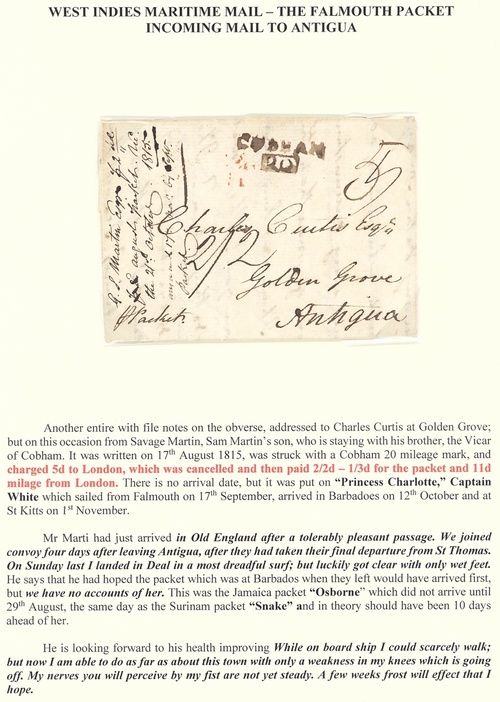 WEST INDIES MARITIME MAIL – THE FALMOUTH PACKET
INCOMING MAIL TO ANTIGUA
COBHAM
20
5
G. S. Martin Esqr
august packet
1815.
the 21st October
Packet
P Packet
Charles Curtis Esqr
2/2
Golden Grove
Antigua
Another entire with file notes on the obverse, addressed to Charles Curtis at Golden Grove;
but on this occasion from Savage Martin, Sam Martin's son, who is staying with his brother, the Vicar
of Cobham. It was written on 17th August 1815, was struck with a Cobham 20 mileage mark, and
charged 5d to London, which was cancelled and then paid 2/2d – 1/3d for the packet and 11d
milage from London. There is no arrival date, but it was put on "Princess Charlotte," Captain
White which sailed from Falmouth on 17th September, arrived in Barbadoes on 12th October and at
St Kitts on 1st November.
Mr Marti had just arrived in Old England after a tolerably pleasant passage. We joined
convoy four days after leaving Antigua, after they had taken their final departure from St Thomas.
On Sunday last I landed in Deal in a most dreadful surf; but luckily got clear with only wet feet.
He says that he had hoped the packet which was at Barbados when they left would have arrived first,
but we have no accounts of her. This was the Jamaica packet "Osborne" which did not arrive until
29th August, the same day as the Surinam packet "Snake" and in theory should have been 10 days
ahead of her.
He is looking forward to his health improving While on board ship I could scarcely walk;
but now I am able to do as far as about this town with only a weakness in my knees which is going
off. My nerves you will perceive by my fist are not yet steady. A few weeks frost will effect that I
hope.